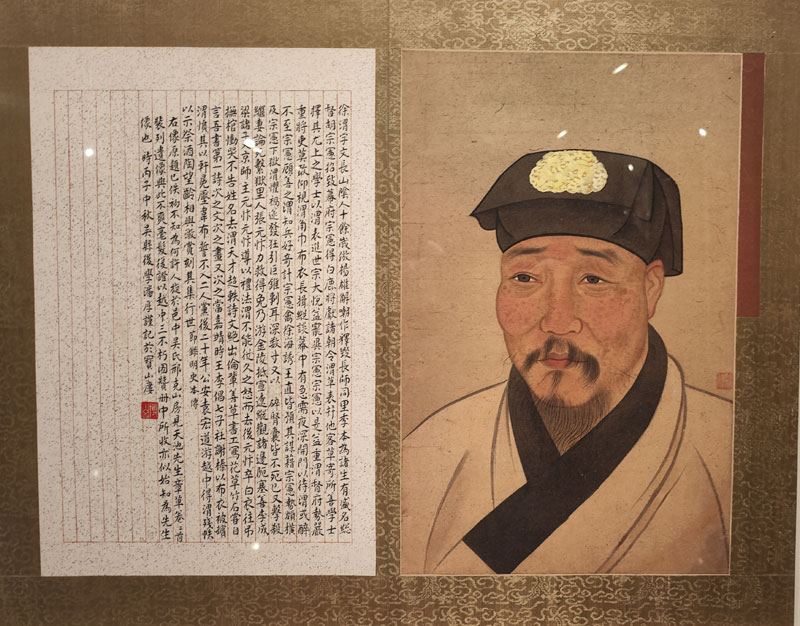 徐渭字文長山陰人十餘歲倣揚雄解嘲作釋毀長師同里季本為諸生有盛名總
督胡宗憲招致幕府宗憲得白鹿將獻諸朝令渭草表并他客草寄所善學士
擇其尤上之學士以渭表進世宗大悅益寵異宗憲宗憲以是益重渭督府勢嚴
重將吏莫敢仰視渭角巾布衣長揖縱談幕中有急需夜深開門以待渭或醉
不至宗憲顧善之渭知兵好奇計宗憲禽徐海誘王直皆預其謀藉宗憲勢頗橫
及宗憲下獄渭懼禍遂發狂引巨錐剚耳深數寸又以碎腎囊皆不死已又擊殺
繼妻論死繫獄里人張元忭力救得免乃游金陵抵宣遼縱觀諸邊阨塞善李成
梁諸子入京師主元忭元忭導以禮法渭不能從久之怒而去後元忭卒白衣往弔
撫棺慟哭不告姓名去渭天才超軼詩文絕出倫輩善草書工寫花草竹石嘗自
言吾書第一詩次之文次之畫又次之當嘉靖時王李倡七子社謝榛以布衣被擯
渭憤其以軒冕壓韋布誓不入二人黨後二十年公安袁宏道游越中得渭殘帙
以示祭酒陶望齡相與激賞刻其集行世 節錄明史本傳
右像原題已佚初不知為何許人旋於邑中吳氏邢克山房見天池先生章草卷首
裝列遺像與此不爽毫髮後證以越中三不朽圖贊冊中所收亦似始知為先生
像也 時丙子中秋吳縣後學潘厚謹記於寶山廔